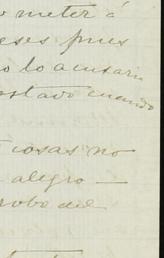 meter á
eses pues
o lo acusari
ostado cuando
cosas no
alegro —
robo del